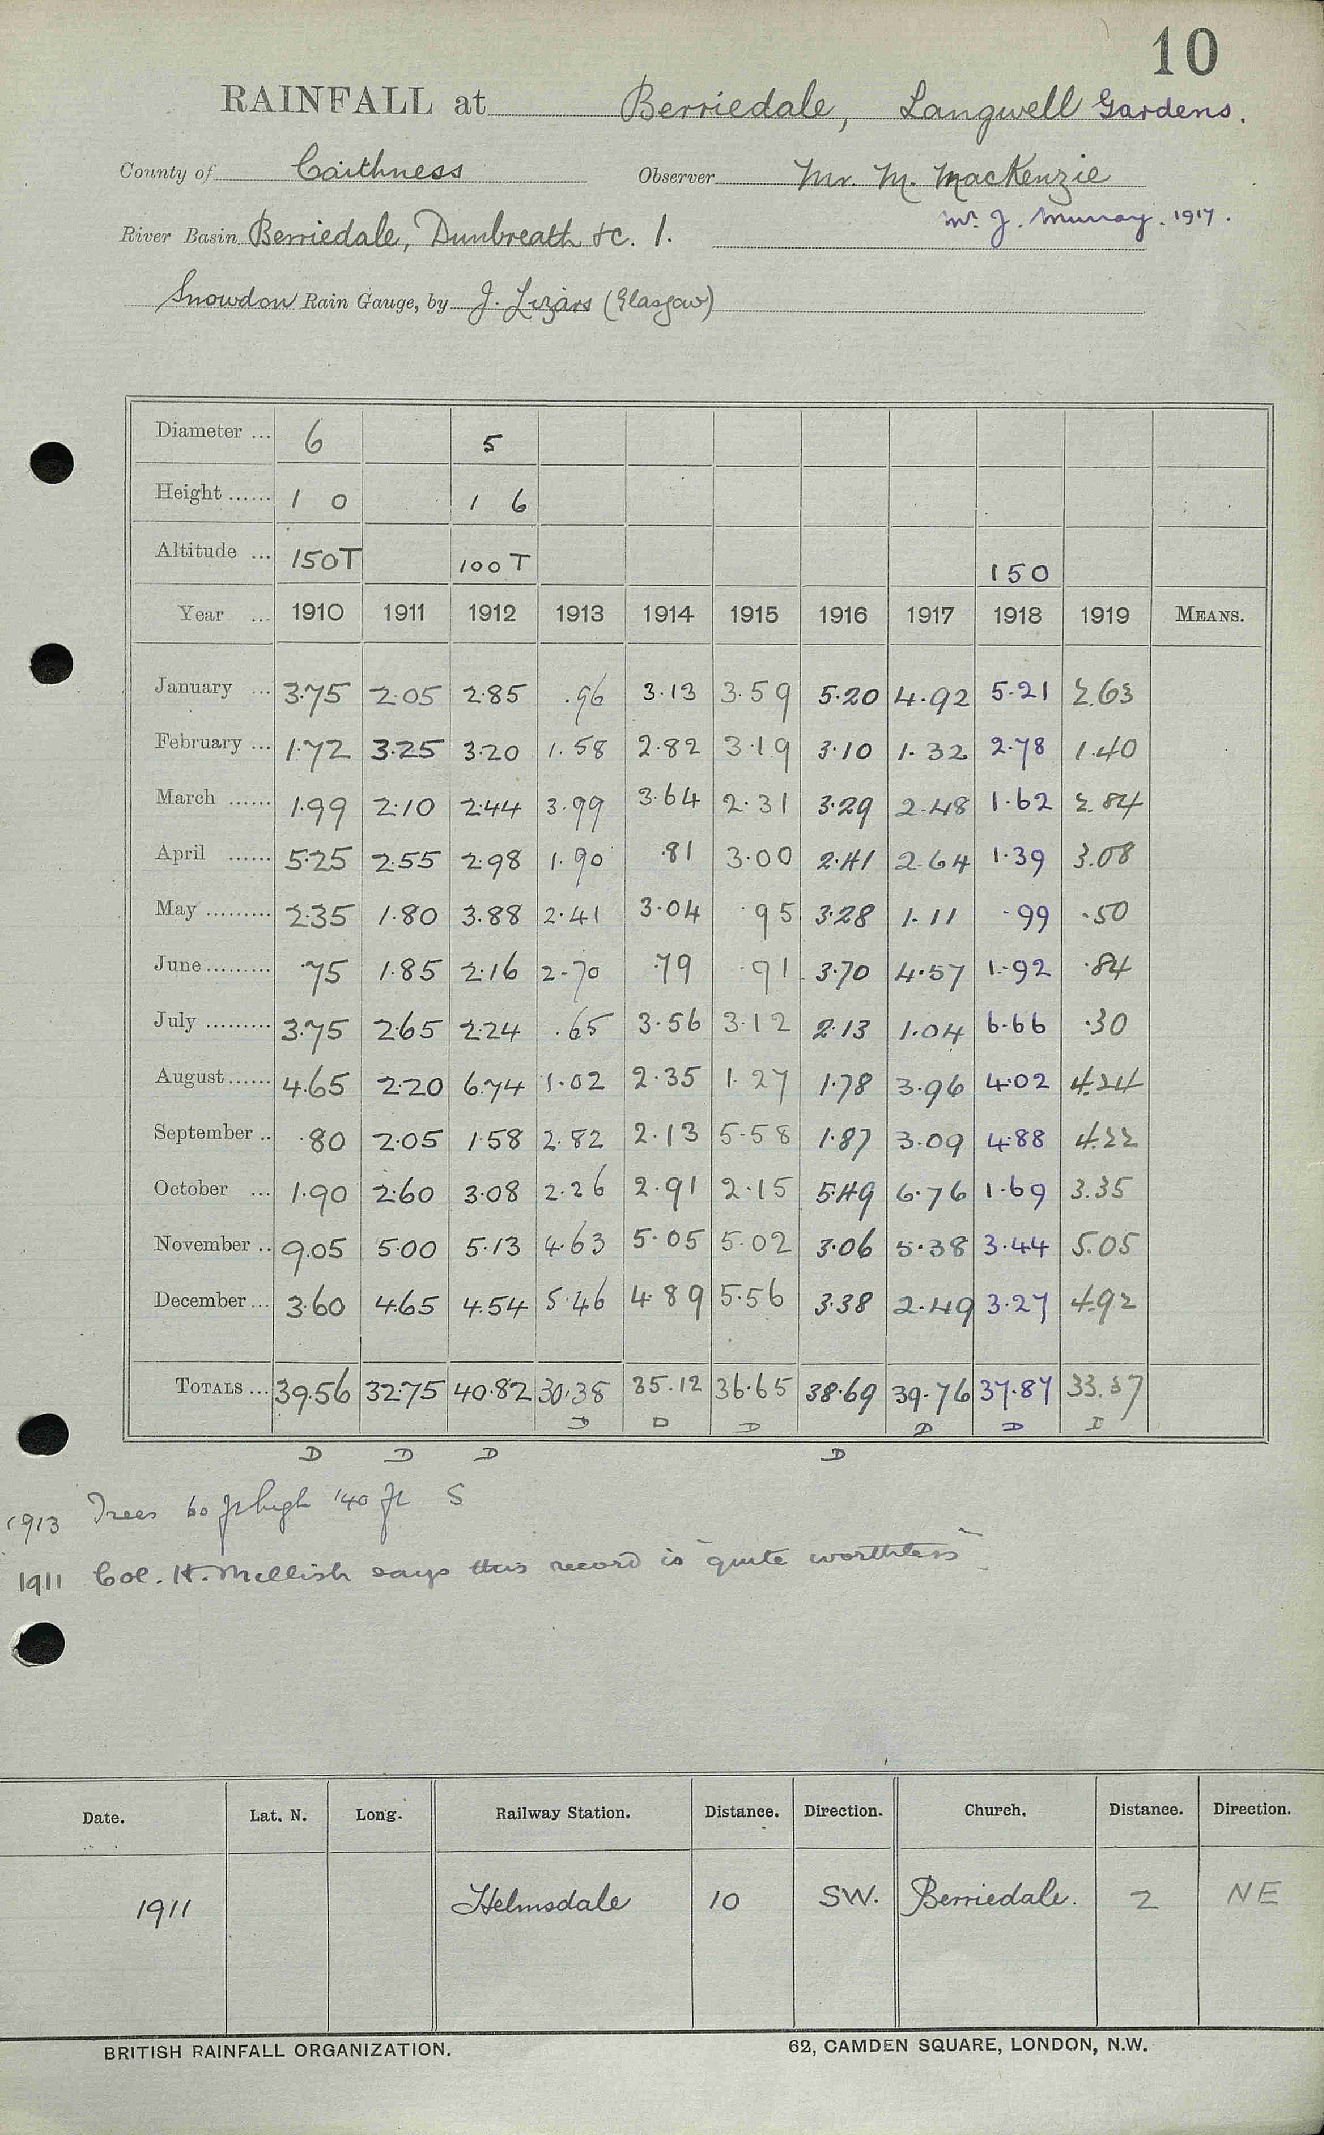 10
RAINFALL at Berriedale, Langwell Gardens.
County of Caithness Observer Mr. M. MacKenzie
Mr. J. Murray. 1917.
River Basin Berriedale, Dunbreath &c. 1.
Snowdon Rain Gauge, by J. Lizars (Glasgow)
Diameter ... 6 5
Height ...... 1 0 1 6
Altitude ... 150T 100T 150
Year ... 1910 1911 1912 1913 1914 1915 1916 1917 1918 1919 MEANS.
January ... 3.75 2.05 2.85 .96 3.13 3.59 5.20 4.92 5.21 2.63
February ... 1.72 3.25 3.20 1.58 2.82 3.19 3.10 1.32 2.78 1.40
March ...... 1.99 2.10 2.44 3.99 3.64 2.31 3.29 2.48 1.62 2.84
April ...... 5.25 2.55 2.98 1.90 .81 3.00 2.41 2.64 1.39 3.08
May ......... 2.35 1.80 3.88 2.41 3.04 .95 3.28 1.11 .99 .50
June ......... .75 1.85 2.16 2.70 .79 .91 3.70 4.57 1.92 .84
July ......... 3.75 2.65 2.24 .65 3.56 3.12 2.13 1.04 6.66 .30
August ...... 4.65 2.20 6.74 1.02 2.35 1.27 1.78 3.96 4.02 4.24
September .. .80 2.05 1.58 2.82 2.13 5.58 1.87 3.09 4.88 4.22
October ... 1.90 2.60 3.08 2.26 2.91 2.15 5.49 6.76 1.69 3.35
November .. 9.05 5.00 5.13 4.63 5.05 5.02 3.06 5.38 3.44 5.05
December ... 3.60 4.65 4.54 5.46 4.89 5.56 3.38 2.49 3.27 4.92
TOTALS ... 39.56 32.75 40.82 30.38 35.12 36.65 38.69 39.76 37.87 33.37
D D D D D D
D D D D
1913 Trees 60 ft high 40 ft S
1911 Col. H. Mellish says this record is "quite worthless"
Date. Lat. N. Long. Railway Station. Distance. Direction. Church. Distance. Direction.
1911 Helmsdale 10 SW. Berriedale. 2 NE
BRITISH RAINFALL ORGANIZATION. 62, CAMDEN SQUARE, LONDON, N.W.